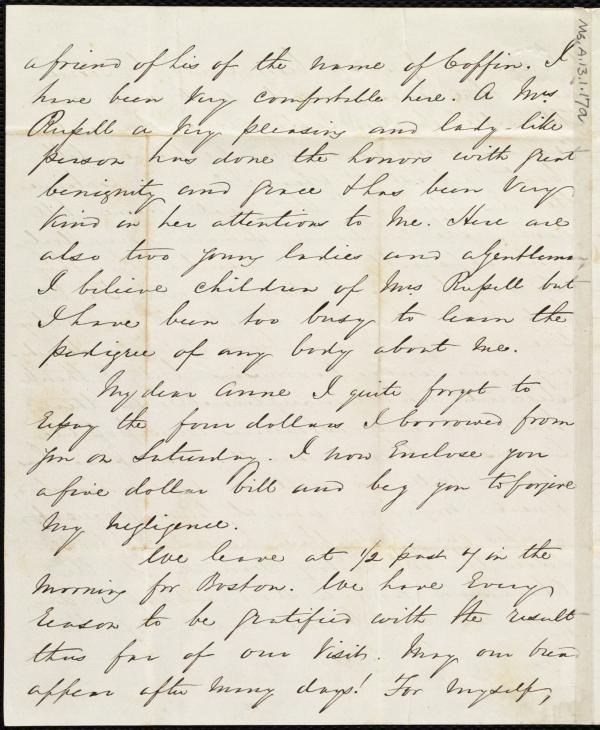 a friend of his of the name of Coffin. I
have been very comfortable here. A Mrs
Russell a very pleasing and lady-like
person has done the honors with great
benignity and grace & has been very
kind in her attentions to me. Here are
also two young ladies and a Gentleman
I believe children of Mrs Russell but
I have been too busy to learn the
pedigree of any body about me.
My dear Anne I quite forgot to
repay the four dollars I borrowed from
you on Saturday. I now enclose you
a five dollar bill and beg you to forgive
my negligence.
We leave at 1/2 past 7 in the
morning for Boston. We have every
reason to be gratified with the result
thus far of our visit. May our bread
appear after many days! For myself,
Ms.A.13.1.17a